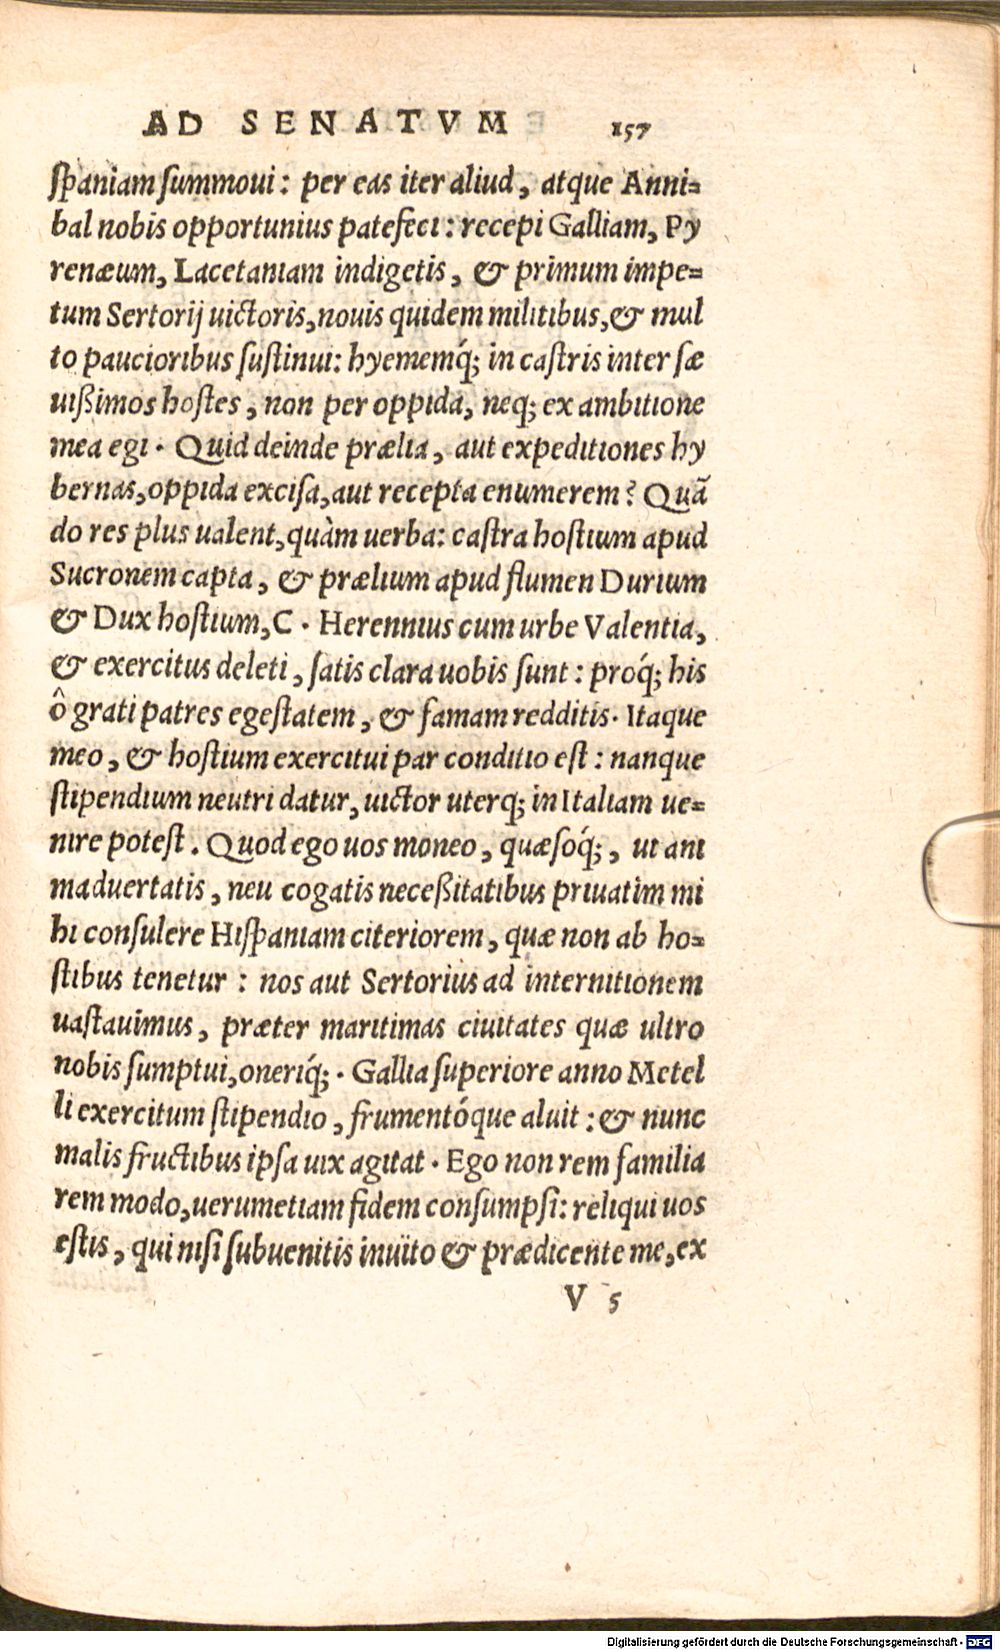 AD SENATVM 157
spaniam summoui: per eas iter aliud, atque Anni=
bal nobis opportunius patefeci: recepi Galliam, Py
renæum, Lacetaniam indigetis, & primum impe=
tum Sertorij uictoris, nouis quidem militibus, & mul
to paucioribus sustinui: hyememq́; in castris inter sæ
uißimos hostes, non per oppida, neq; ex ambitione
mea egi. Quid deinde prælia, aut expeditiones hy
bernas, oppida excisa, aut recepta enumerem? Quã
do res plus ualent, quàm uerba: castra hostium apud
Sucronem capta, & prælium apud flumen Durium
& Dux hostium, C. Herennius cum urbe Valentia,
& exercitus deleti, satis clara uobis sunt: proq́; his
ô grati patres egestatem, & famam redditis. Itaque
meo, & hostium exercitui par conditio est: nanque
stipendium neutri datur, uictor uterq; in Italiam ue=
nire potest. Quod ego uos moneo, quæsóq́;, ut ani
maduertatis, neu cogatis neceßitatibus priuatim mi
hi consulere Hispaniam citeriorem, quæ non ab ho=
stibus tenetur: nos aut Sertorius ad internitionem
uastauimus, præter maritimas ciuitates quæ ultro
nobis sumptui, oneriq́;. Gallia superiore anno Metel
li exercitum stipendio, frumentóque aluit: & nunc
malis fructibus ipsa uix agitat. Ego non rem familia
rem modo, uerumetiam fidem consumpsi: reliqui uos
estis, qui nisi subuenitis inuito & prædicente me, ex
V 5
Digitalisierung gefördert durch die Deutsche Forschungsgemeinschaft - DFG